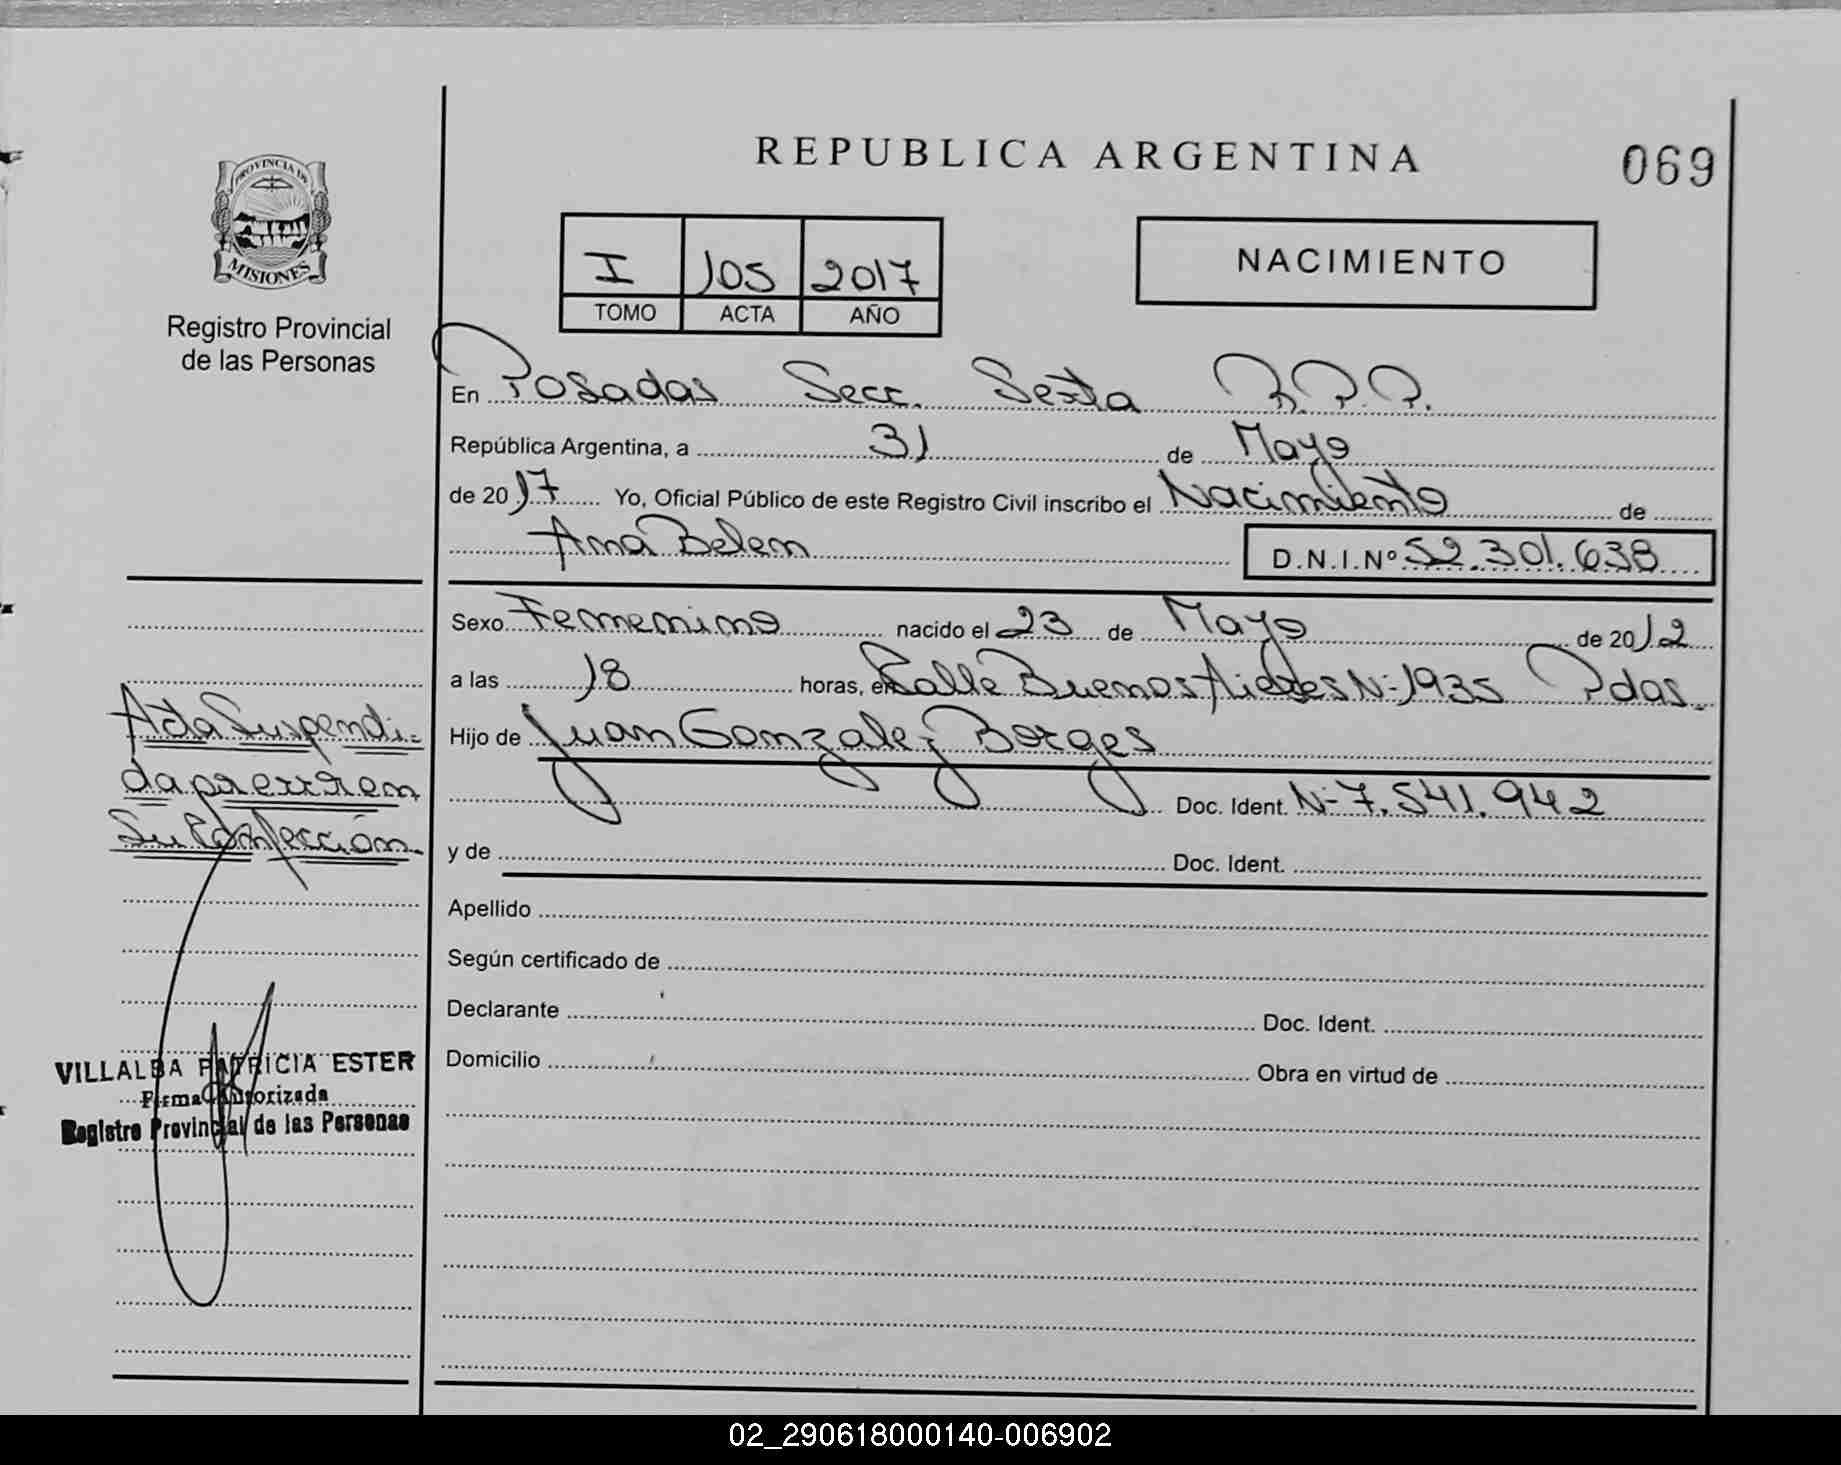 PROVINCIA DE
MISIONES
Registro Provincial
de las Personas
REPUBLICA ARGENTINA
069
I 105 2017
TOMO ACTA AÑO
NACIMIENTO
En Posadas Secc. Sexta R.P.P.
República Argentina, a 31 de Mayo
de 2017 Yo, Oficial Público de este Registro Civil inscribo el Nacimiento de
Ana Belen D.N.I.Nº 52.301.638
Sexo Femenino nacido el 23 de Mayo de 2012
a las 18 horas, en Calle Buenos Aires Nº 1935 Pdas.
Hijo de Juan Gonzalez Borges
Doc. Ident. Nº 7.541.942
y de Doc. Ident.
Apellido
Según certificado de
Declarante Doc. Ident.
Domicilio Obra en virtud de
Acta Suspendi-
da por error en
Su Confección.
VILLALBA PATRICIA ESTER
Firma Autorizada
Registro Provincial de las Personas
02_290618000140-006902